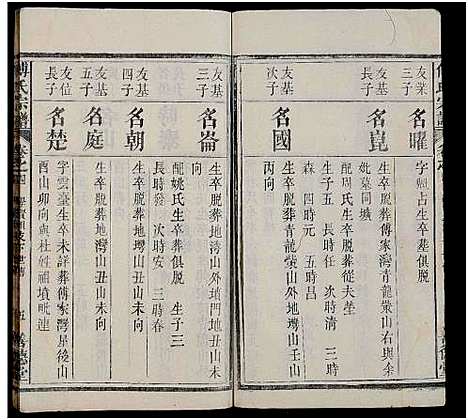 友業
次子
名曜
字賜占生卒葬俱脱
友基
長子
名崑
生卒脱葬傅家灣青龍嘴山與弟
妣葉同壙
配周氏生卒脱葬從夫塋
生子五 長時任 次時清 三時
森 四時元 五時昌
友基
次子
名國
生卒脱葬青龍嘴山外地塆山壬山
丙向
友基
三子
名崙
生卒脱葬地灣山外塝丑山未
向
配姚氏生卒葬俱脱 生子三
長時發 次時安 三時春
友基
四子
名朝
生卒脱葬地塆山丑山未向
友基
五子
名庭
生卒脱葬地灣山丑山未向
友位
長子
名楚
字雲臺生卒未詳葬傅家灣屋後山
酉山卯向與杜姓祖墳毗連
傅氏宗譜
五
善德堂